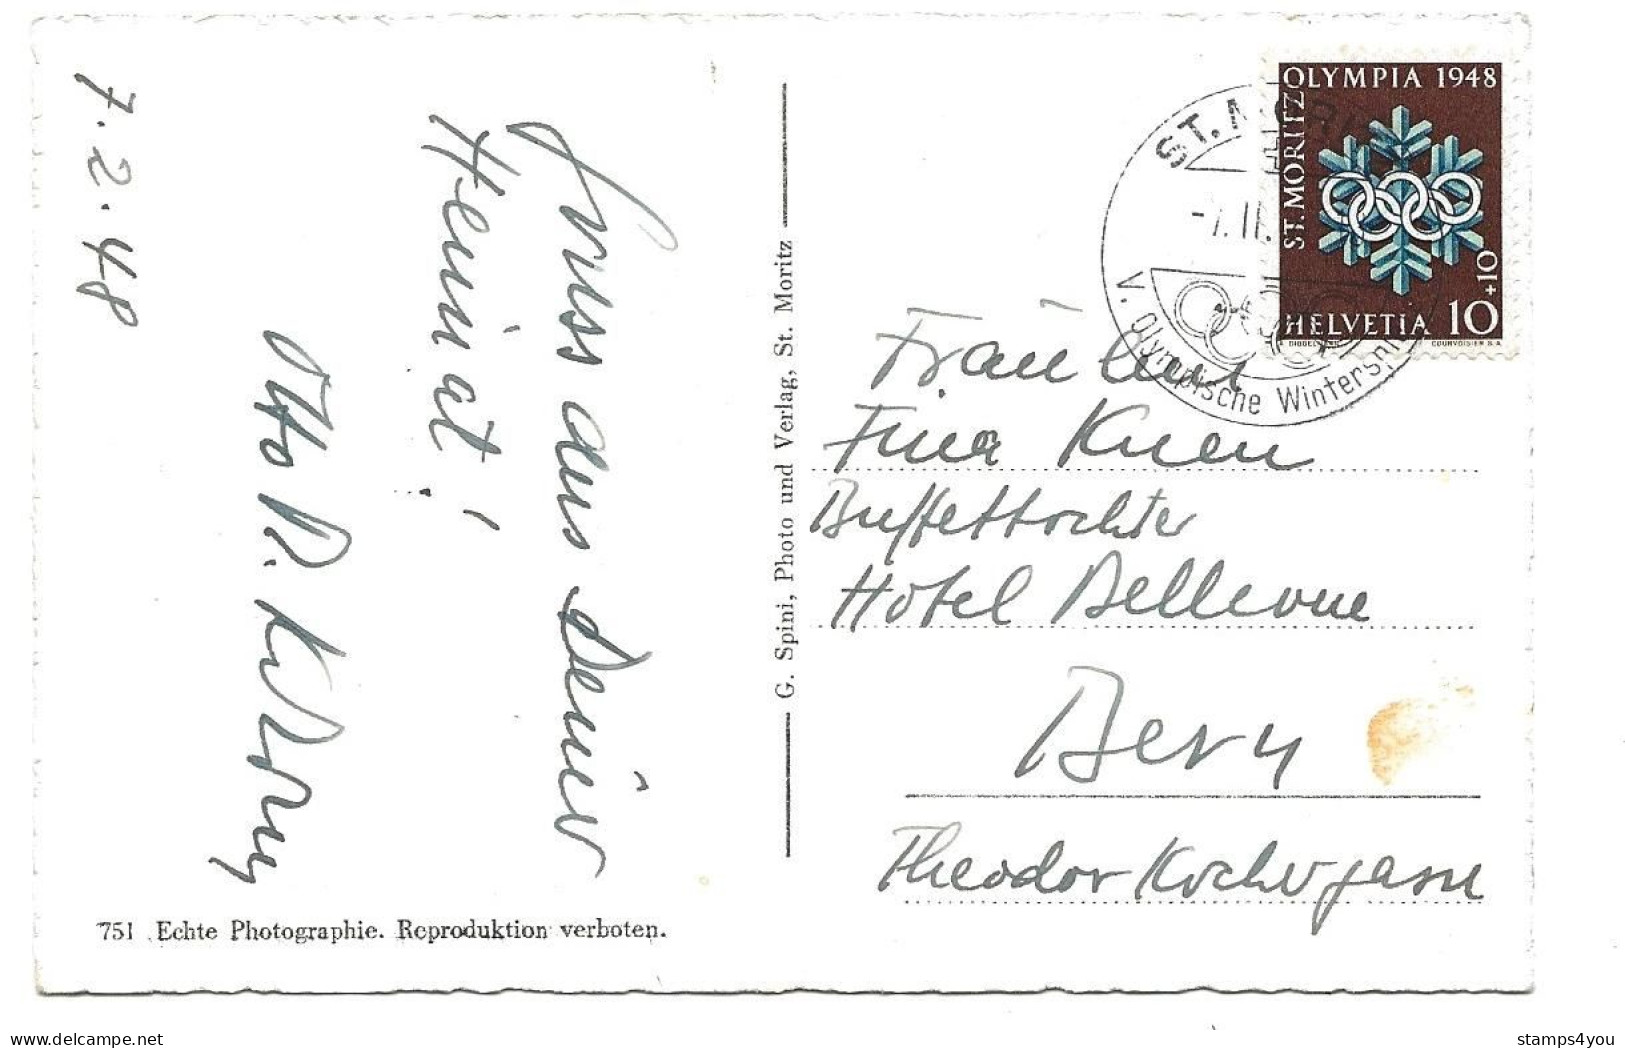 7.2.48
Gruss aus Deiner
Heimat!
Otto P.
751 Echte Photographie. Reproduktion verboten.
G. Spini, Photo und Verlag, St. Moritz
ST. MORITZ
-7.II.
V. Olympische Winterspiele
OLYMPIA 1948
ST. MORITZ
10+10
HELVETIA
COURVOISIER S.A.
Fräulein
Fina Kuen
Buffettochter
Hotel Bellevue
Bern
Theodor Kochergasse
stamps4you